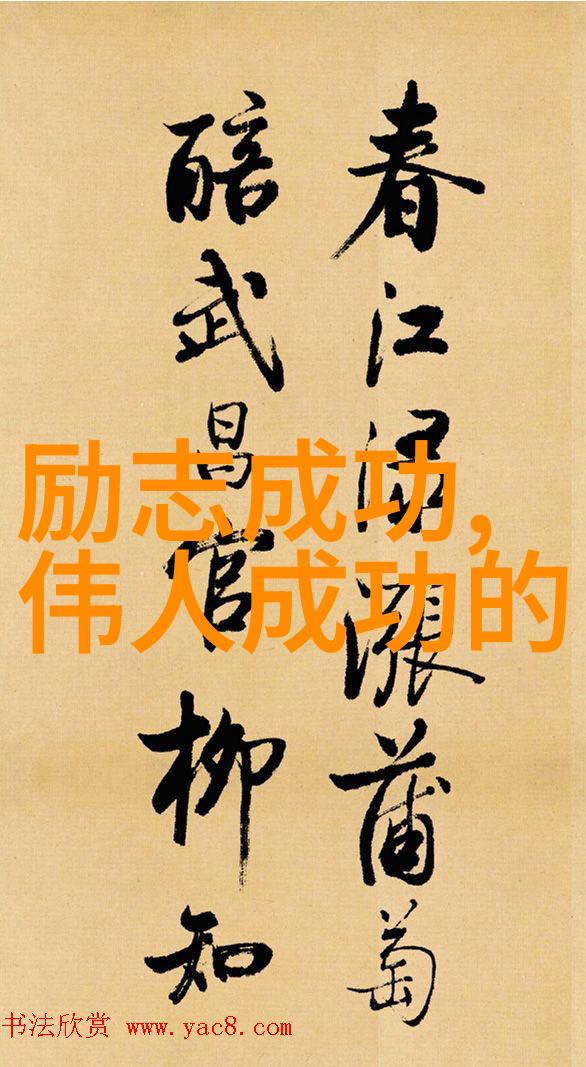 春江淥漲蒲萄
醅武昌官柳知
励志成功,
伟人成功的
书法欣赏 www.yac8.com